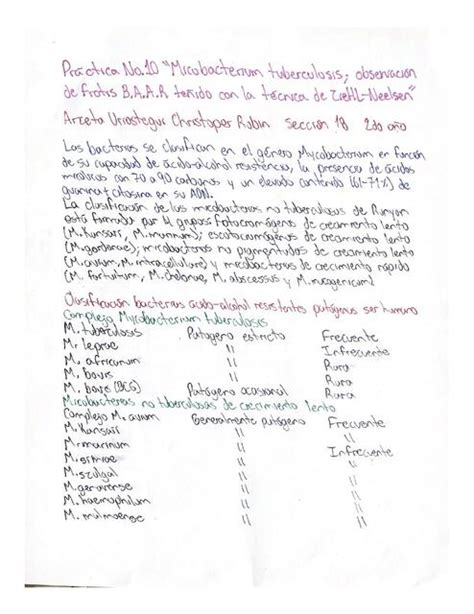 Práctica No.10 "Micobacterium tuberculosis; observación
de frotis B.A.A.R teñido con la técnica de Ziehl-Neelsen"
Arzeta Uriostegui Christoper Rubin Sección 18 2do año
Las bacterias se clasifican en el género Mycobacterium en función
de su capacidad de ácido-alcohol resistencia, la presencia de ácidos
micolicos con 70 a 90 carbonos y un elevado contenido (61-71%) de
guanina + citosina en su ADN.
La clasificación de las micobacterias no tuberculosas de Runyon
está formada por 4 grupos fotocromógenas de crecimiento lento
(M. Kansaii, M. marinum); escotocromógenas de crecimiento lento
(M. gordonae); micobacterias no pigmentadas de crecimiento lento
(M. avium, M. intracellulare) y micobacterias de crecimiento rápido
(M. fortuitum, M. chelonae, M. abscessus y M. mucogenicum)
Clasificación bacterias ácido-alcohol resistentes patógenas ser humano
Complejo Mycobacterium tuberculosis
M. tuberculosis Patógeno estricto Frecuente
M. leprae " Infrecuente
M. africanum " Rara
M. bovis " Rara
M. bovis (BCG) Patógeno ocasional Rara
Micobacterias no tuberculosas de crecimiento lento
Complejo M. avium Generalmente patógeno Frecuente
M. Kansaii " "
M. marinum " Infrecuente
M. simiae " "
M. szulgai " "
M. genavense " "
M. haemophilum " "
M. malmoense " "